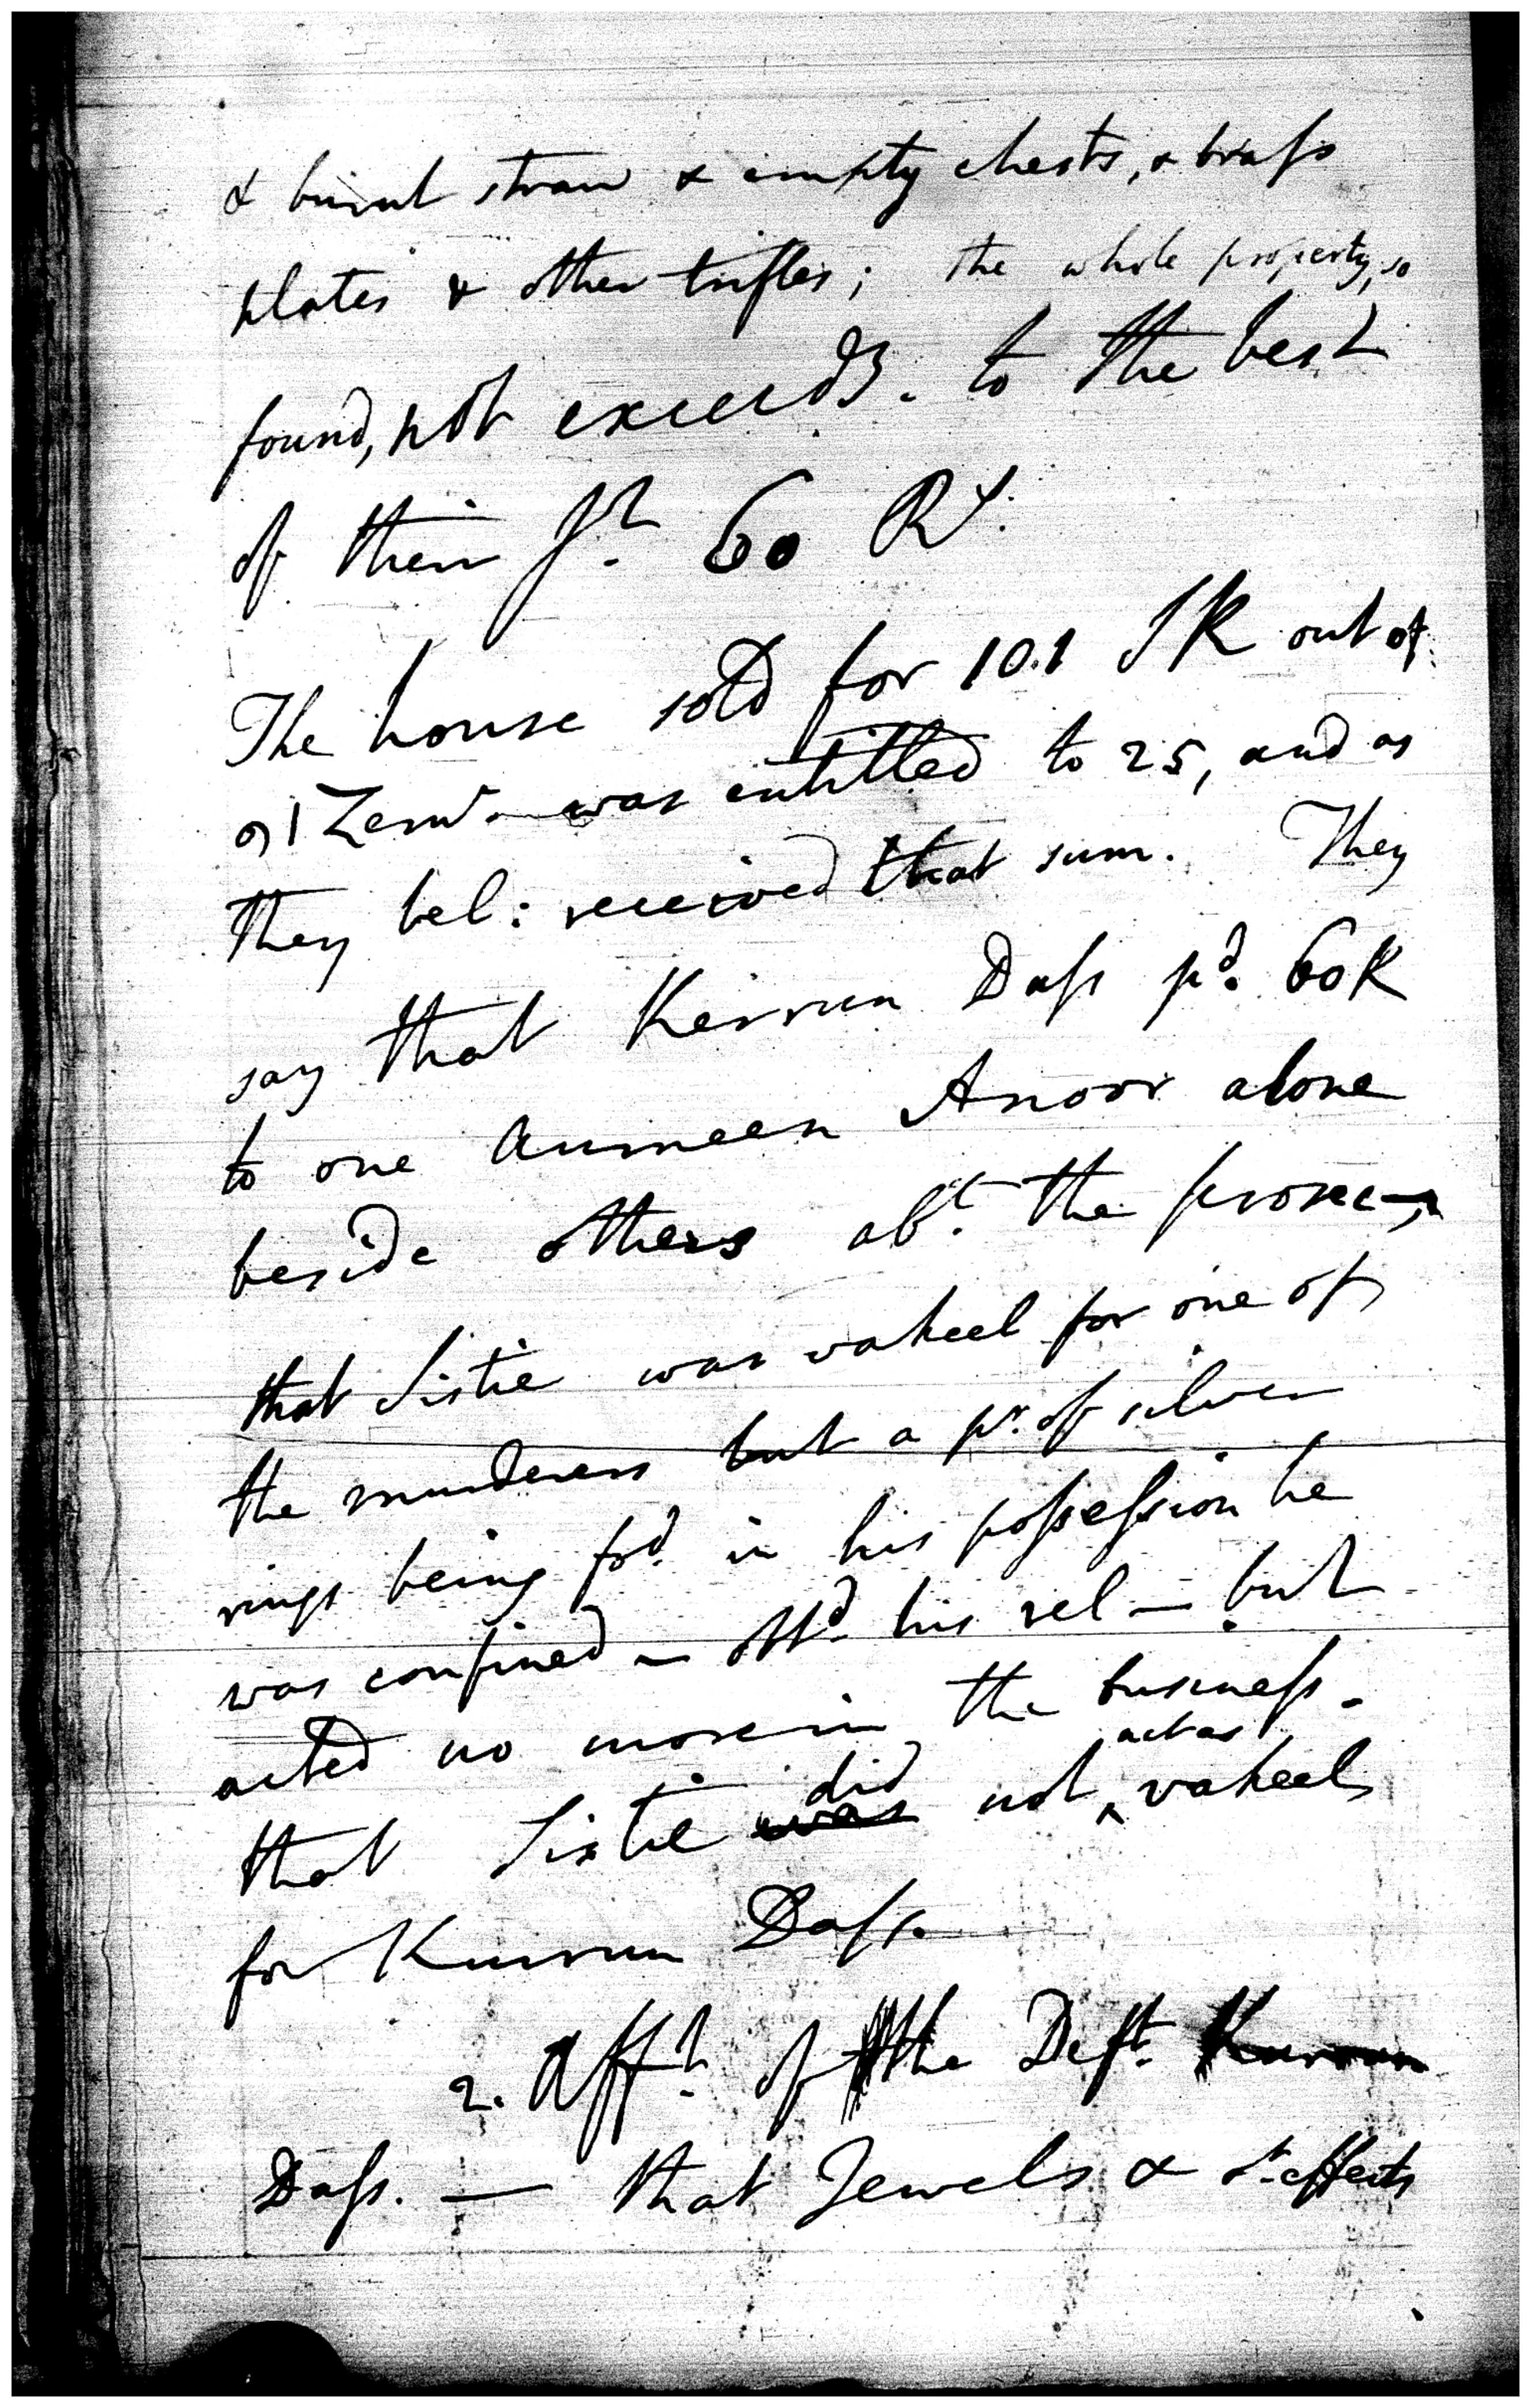 & burnt straw & empty chests, & brass
plates & other trifles; the whole property, so
found, not exceedg. to the best
of their Jt. 60 Rs.
The house sold for 101 SR out of
was entitled to 25, and as
they bel: received that sum. They
say that Kerrun Dass pd. 60 R
to one Aumeen Anoor alone
beside others abt. the prosec—n
that Sistie was vakeel for one of
the murderers but a pr. of silver
rings being fod. in his possession he
was confined — his rel — but
acted no more in the business.
that Sistie was did not ^ act as vakeel
for Kurrun Dass.
2. Afft. of the Deft. Kurrun
Dass. — that Jewels & effects